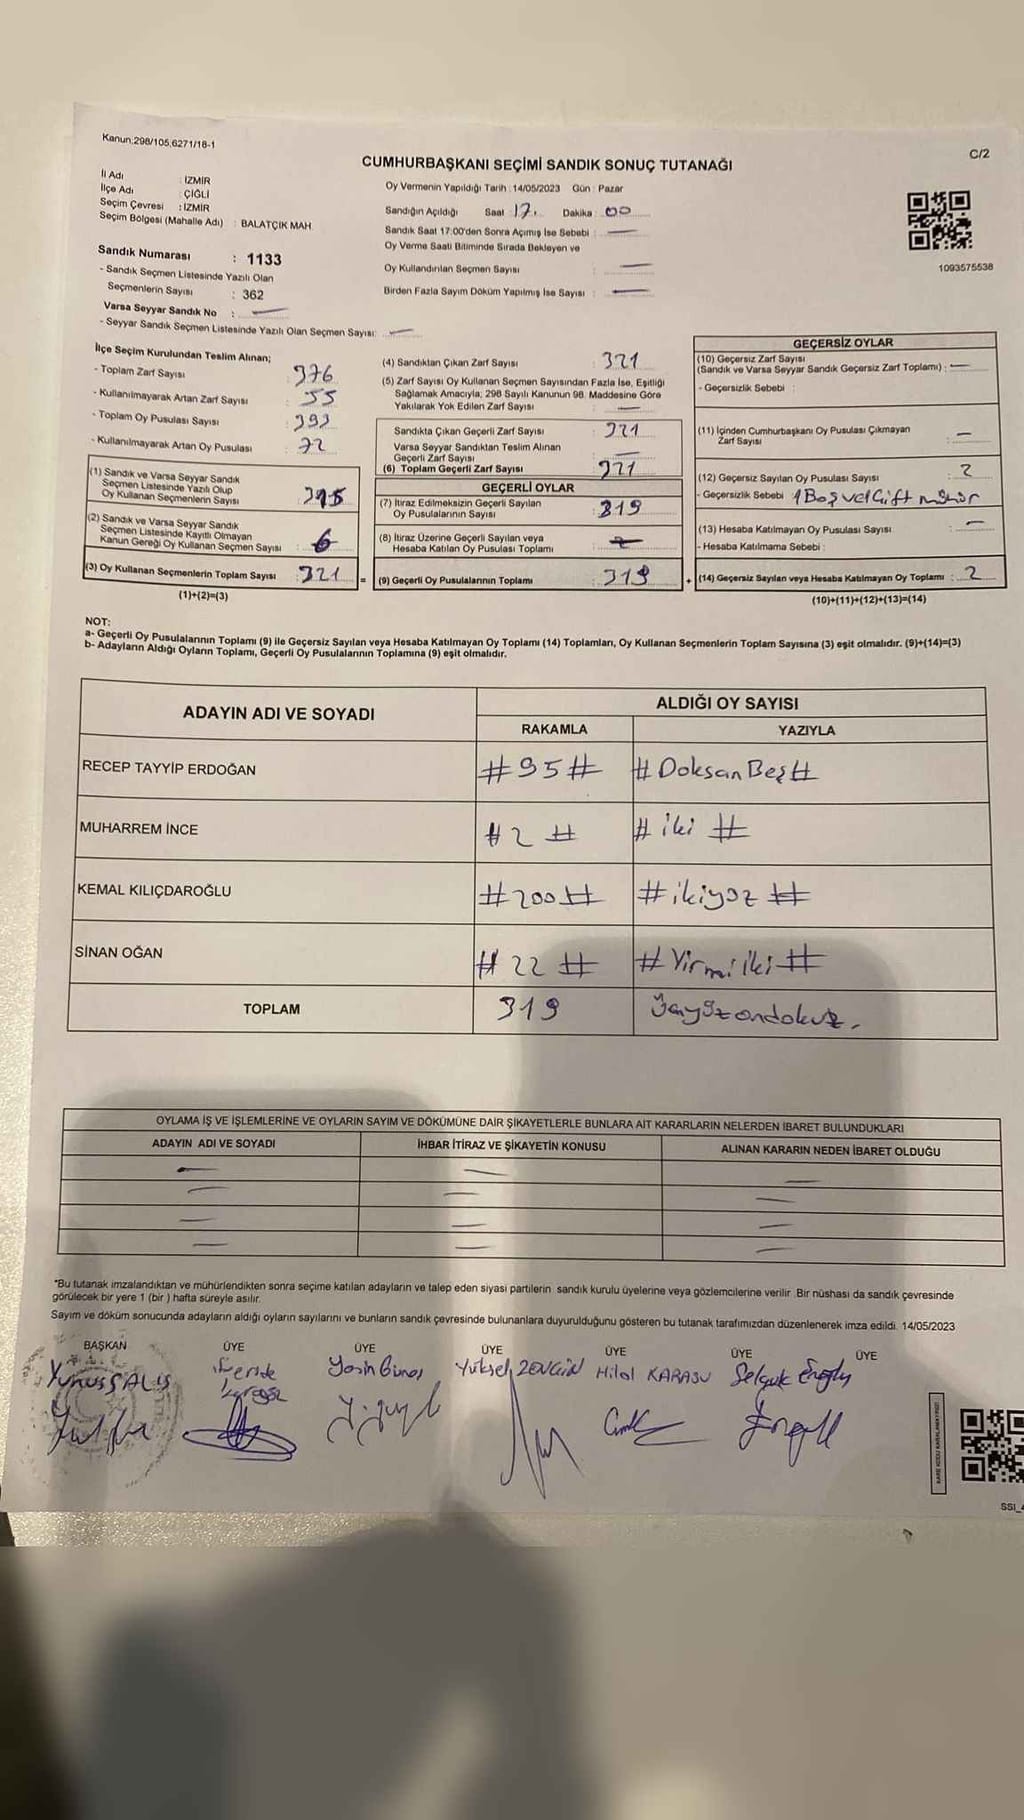 Kanun;298/105,6271/18-1
C/2
CUMHURBAŞKANI SEÇİMİ SANDIK SONUÇ TUTANAĞI
İl Adı : İZMİR
İlçe Adı : ÇİĞLİ
Seçim Çevresi : İZMİR
Seçim Bölgesi (Mahalle Adı) : BALATÇIK MAH
Oy Vermenin Yapıldığı Tarih : 14/05/2023 Gün : Pazar
Sandığın Açıldığı Saat 17. Dakika : 00
Sandık Saat 17:00'den Sonra Açımış İse Sebebi : —
Oy Verme Saati Bitiminde Sırada Bekleyen ve
Oy Kullandırılan Seçmen Sayısı : —
Birden Fazla Sayım Döküm Yapılmış İse Sayısı : —
1093575538
Sandık Numarası : 1133
- Sandık Seçmen Listesinde Yazılı Olan
Seçmenlerin Sayısı : 362
Varsa Seyyar Sandık No : —
- Seyyar Sandık Seçmen Listesinde Yazılı Olan Seçmen Sayısı: —
İlçe Seçim Kurulundan Teslim Alınan;
- Toplam Zarf Sayısı 376
- Kullanılmayarak Artan Zarf Sayısı 55
- Toplam Oy Pusulası Sayısı 393
- Kullanılmayarak Artan Oy Pusulası 72
(1) Sandık ve Varsa Seyyar Sandık
Seçmen Listesinde Yazılı Olup
Oy Kullanan Seçmenlerin Sayısı : 315
(2) Sandık ve Varsa Seyyar Sandık
Seçmen Listesinde Kayıtlı Olmayan
Kanun Gereği Oy Kullanan Seçmen Sayısı : 6
(3) Oy Kullanan Seçmenlerin Toplam Sayısı : 321 =
(1)+(2)=(3)
(4) Sandıktan Çıkan Zarf Sayısı : 321
(5) Zarf Sayısı Oy Kullanan Seçmen Sayısından Fazla İse, Eşitliği
Sağlamak Amacıyla; 298 Sayılı Kanunun 98. Maddesine Göre
Yakılarak Yok Edilen Zarf Sayısı : —
Sandıkta Çıkan Geçerli Zarf Sayısı : 321
Varsa Seyyar Sandıktan Teslim Alınan
Geçerli Zarf Sayısı : —
(6) Toplam Geçerli Zarf Sayısı 321
GEÇERLİ OYLAR
(7) İtiraz Edilmeksizin Geçerli Sayılan
Oy Pusulalarının Sayısı : 319
(8) İtiraz Üzerine Geçerli Sayılan veya
Hesaba Katılan Oy Pusulası Toplamı :
(9) Geçerli Oy Pusulalarının Toplamı : 319 +
GEÇERSİZ OYLAR
(10) Geçersiz Zarf Sayısı
(Sandık ve Varsa Seyyar Sandık Geçersiz Zarf Toplamı) : —
- Geçersizlik Sebebi :
(11) İçinden Cumhurbaşkanı Oy Pusulası Çıkmayan
Zarf Sayısı : —
(12) Geçersiz Sayılan Oy Pusulası Sayısı : 2
- Geçersizlik Sebebi 1Boş ve1Çift mühür
(13) Hesaba Katılmayan Oy Pusulası Sayısı : —
- Hesaba Katılmama Sebebi :
(14) Geçersiz Sayılan veya Hesaba Katılmayan Oy Toplamı : 2
(10)+(11)+(12)+(13)=(14)
NOT:
a- Geçerli Oy Pusulalarının Toplamı (9) ile Geçersiz Sayılan veya Hesaba Katılmayan Oy Toplamı (14) Toplamları, Oy Kullanan Seçmenlerin Toplam Sayısına (3) eşit olmalıdır. (9)+(14)=(3)
b- Adayların Aldığı Oyların Toplamı, Geçerli Oy Pusulalarının Toplamına (9) eşit olmalıdır.
ADAYIN ADI VE SOYADI
ALDIĞI OY SAYISI
RAKAMLA YAZIYLA
RECEP TAYYİP ERDOĞAN #95# #DoksanBeş#
MUHARREM İNCE #2# #iki#
KEMAL KILIÇDAROĞLU #200# #ikiyüz#
SİNAN OĞAN #22# #Yirmiiki#
TOPLAM 319 üçyüzondokuz.
OYLAMA İŞ VE İŞLEMLERİNE VE OYLARIN SAYIM VE DÖKÜMÜNE DAİR ŞİKAYETLERLE BUNLARA AİT KARARLARIN NELERDEN İBARET BULUNDUKLARI
ADAYIN ADI VE SOYADI İHBAR İTİRAZ VE ŞİKAYETİN KONUSU ALINAN KARARIN NEDEN İBARET OLDUĞU
— — —
— — —
— — —
— — —
*Bu tutanak imzalandıktan ve mühürlendikten sonra seçime katılan adayların ve talep eden siyasi partilerin sandık kurulu üyelerine veya gözlemcilerine verilir. Bir nüshası da sandık çevresinde
görülecek bir yere 1 (bir ) hafta süreyle asılır.
Sayım ve döküm sonucunda adayların aldığı oyların sayılarını ve bunların sandık çevresinde bulunanlara duyurulduğunu gösteren bu tutanak tarafımızdan düzenlenerek imza edildi. 14/05/2023
BAŞKAN ÜYE ÜYE ÜYE ÜYE ÜYE ÜYE
Yunus SALIŞ Feride Yasin Güneş Yüksel ZENGİN Hilal KARASU Selçuk Eroğlu